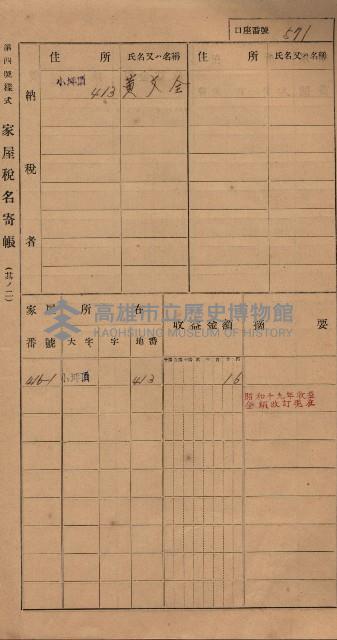 口座番號 571
第四號樣式 家屋稅名寄帳 (其ノ二)
納稅者
住所 氏名又ハ名稱 住所 氏名又ハ名稱
小坪頂 413 黃 全
高雄市立歷史博物館
KAOHSIUNG MUSEUM OF HISTORY
家屋所在 收益金額 摘要
番號 大字 字 地番
416-1 小坪頂 413 16
昭和十九年收益
金額改訂更正